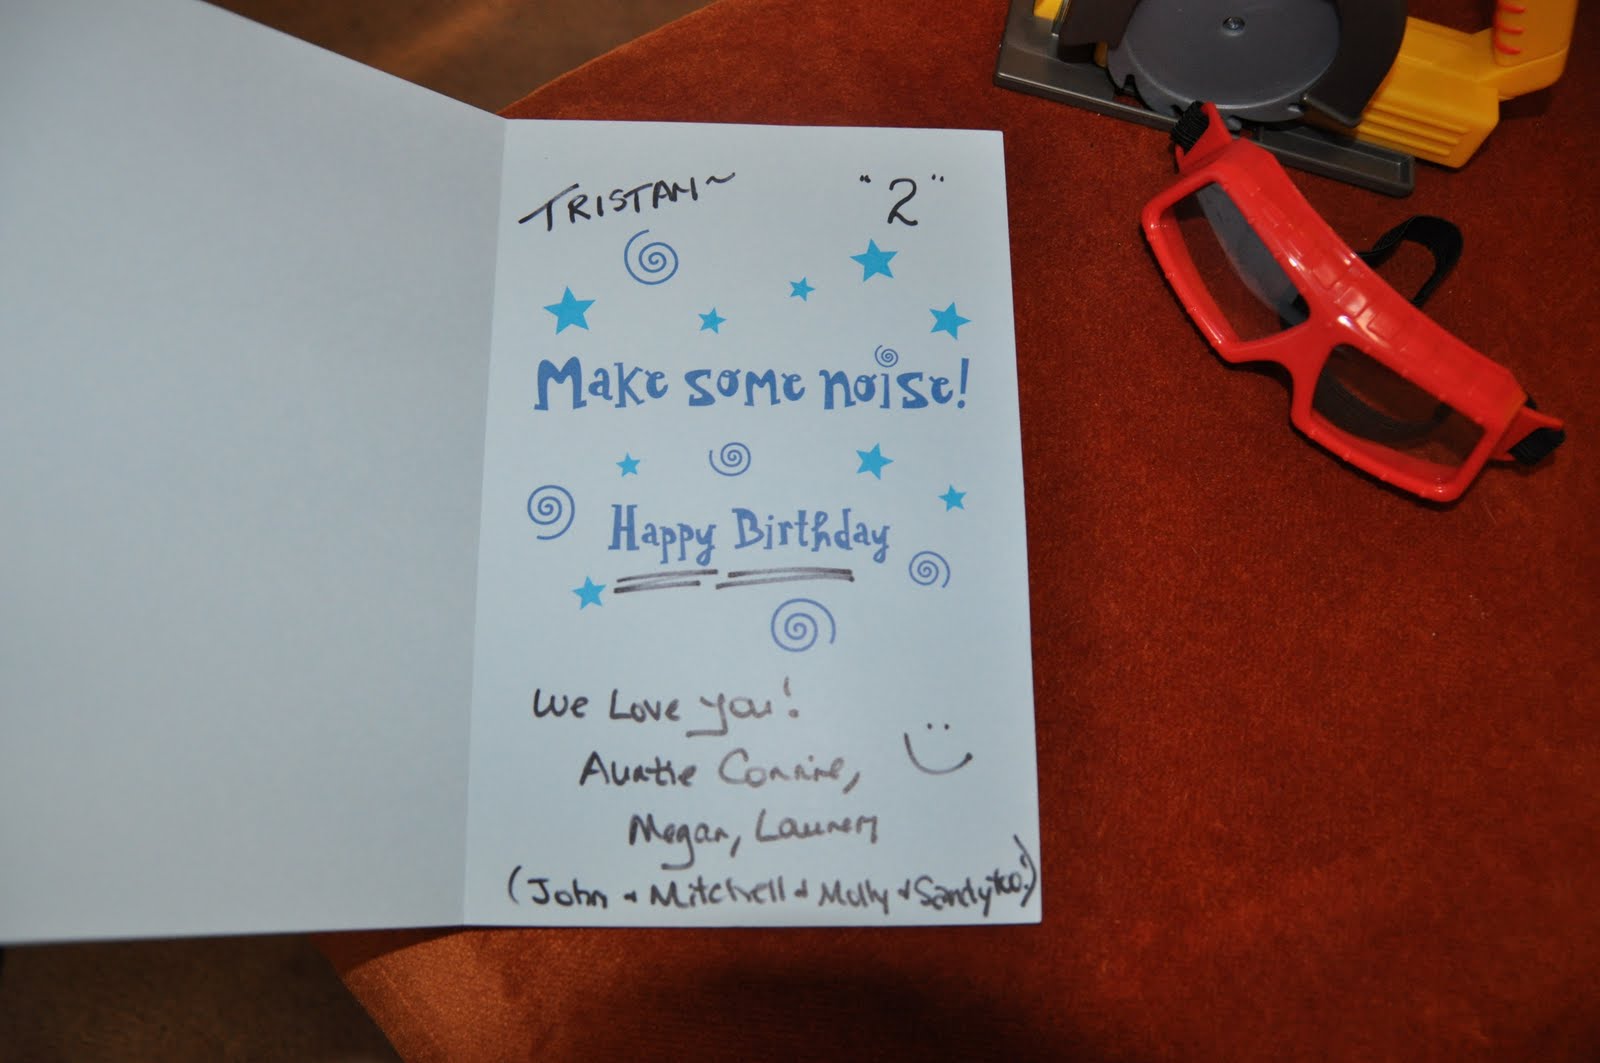 TRISTAN~ "2"
Make some noise!
Happy Birthday
We Love you!
Auntie Connie,
Megan, Lauren
(John & Mitchell & Molly & Sandy too!)